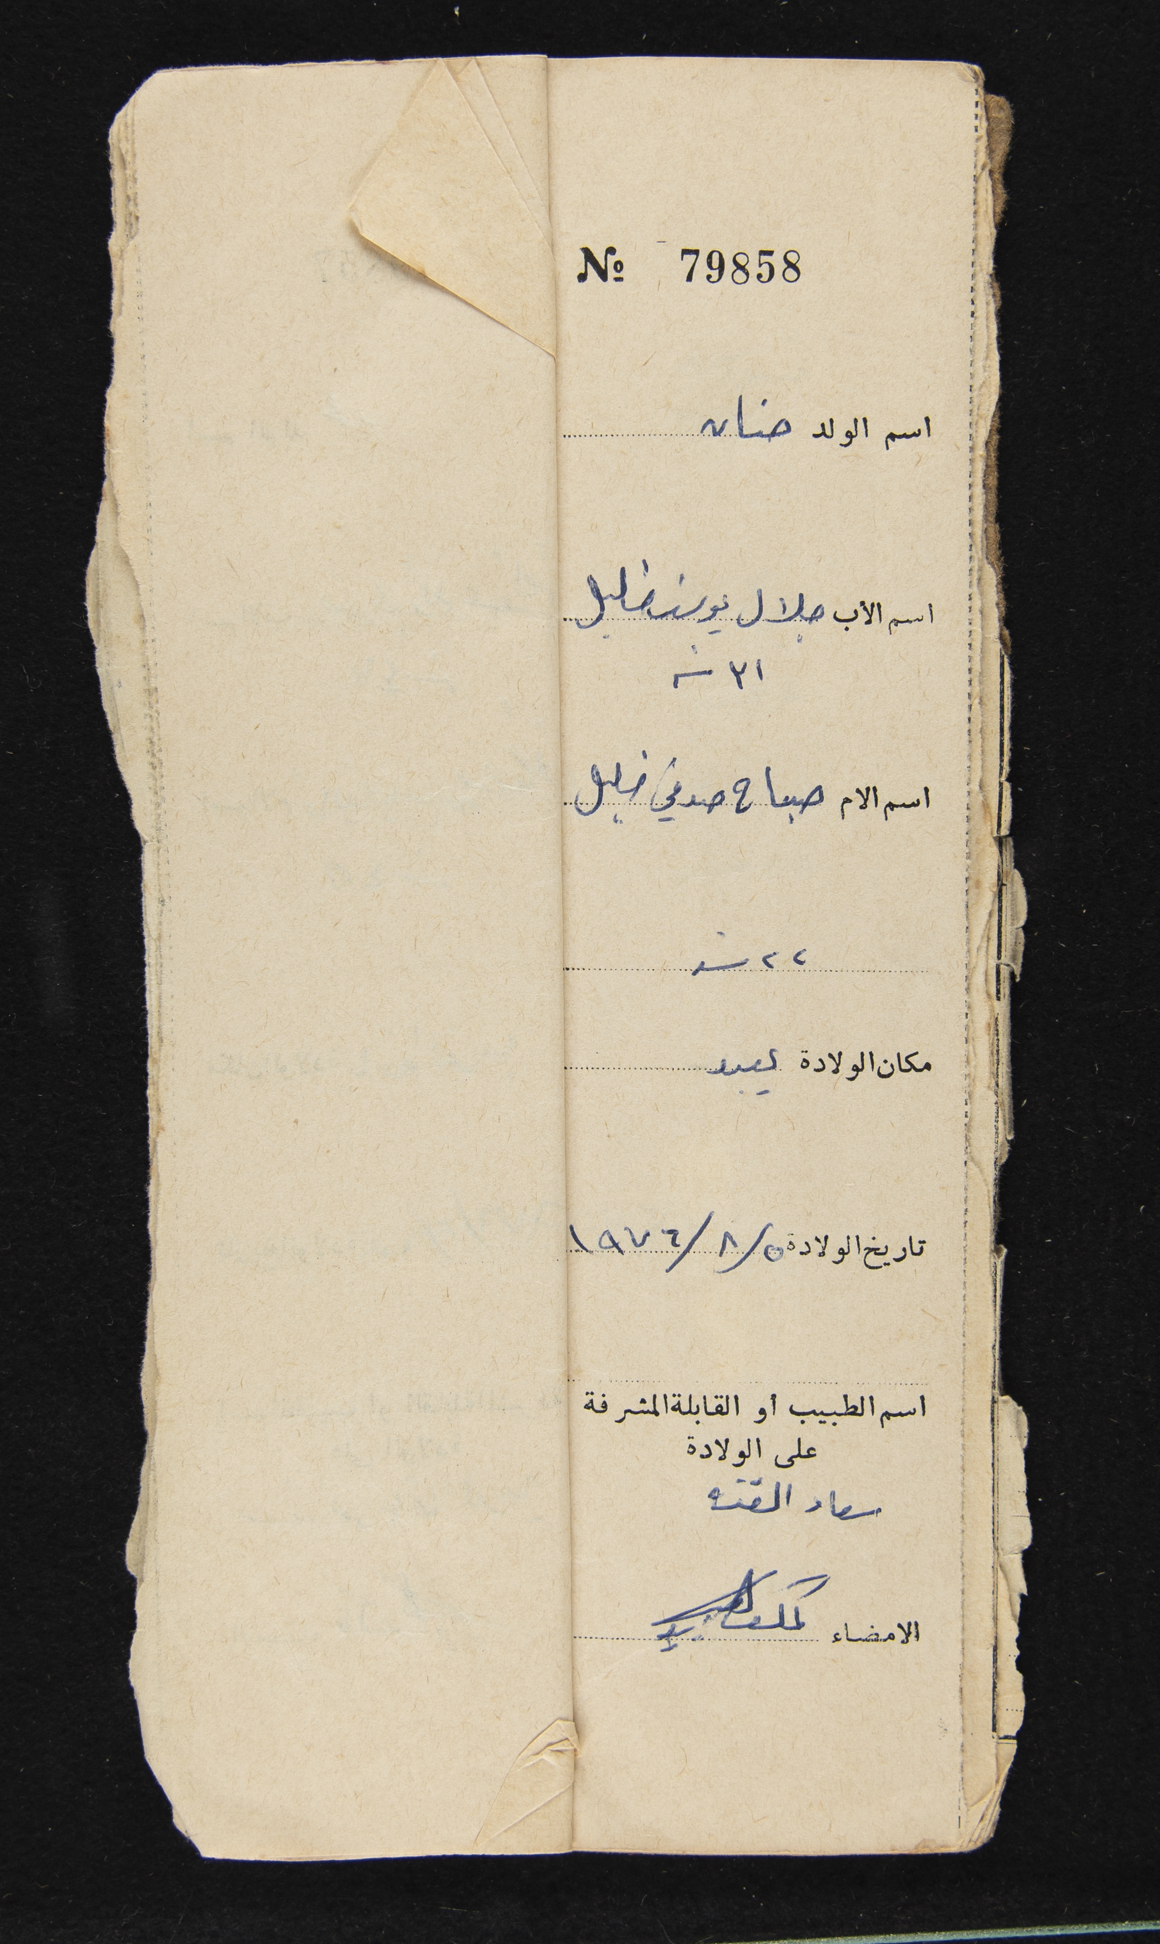 № 79858
اسم الولد حنان
اسم الأب جلال يوسف خليل
٣١ سنه
اسم الام صباح صدقي خليل
٢٢ سنه
مكان الولادة يعبد
تاريخ الولادة ٥/٨/١٩٧٤
اسم الطبيب أو القابلة المشرفة
على الولادة
سعاد
الامضاء